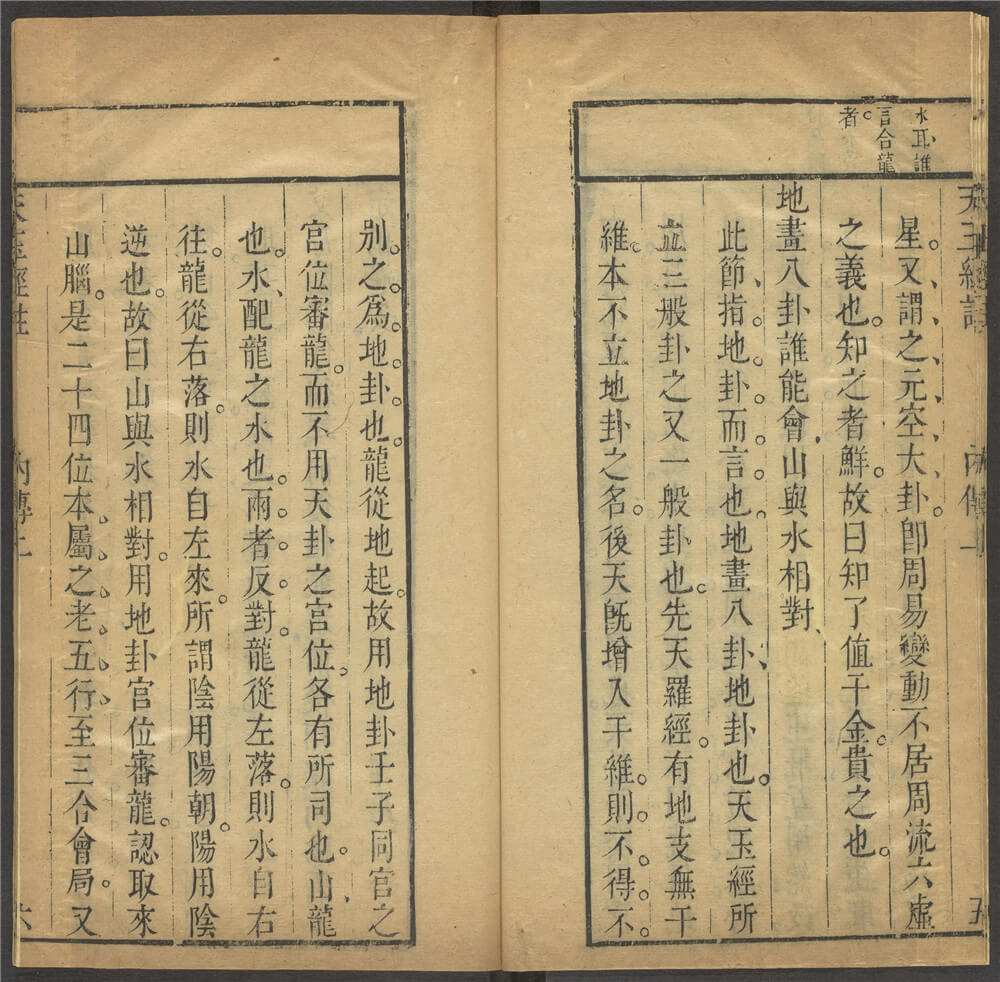 天玉經註
內傳上
五
水耳誰
言合龍
者。
星。又、謂、之、元、空、大、卦。卽周易變動不居周流六虛
之義也。知之者鮮。故曰知了値千金。貴之也。
地畫八卦誰能會、山與水相對、
此節、指。地。卦。而。言。也。地畫八卦、地卦也。天玉經所
立三般卦之又一般卦也。先天羅經。有地支無干
維。本不立地卦之名。後天旣增入干維。則。不。得。不。
別。之。爲。地。卦。也。龍從地起。故用地卦壬子同官之
官位審龍。而不用天卦之官位。各有所司也。山龍
也。水、配龍之水也。兩。者。反。對。龍從左落。則水自右
往。龍從右落。則水自左來。所謂陰用陽朝。陽用陰
逆也。故曰山與水相對。用地卦官位審龍。認取來
山腦。是二十四位本、屬、之、老、五、行、至三合會局。又
天玉經註
內傳上
六